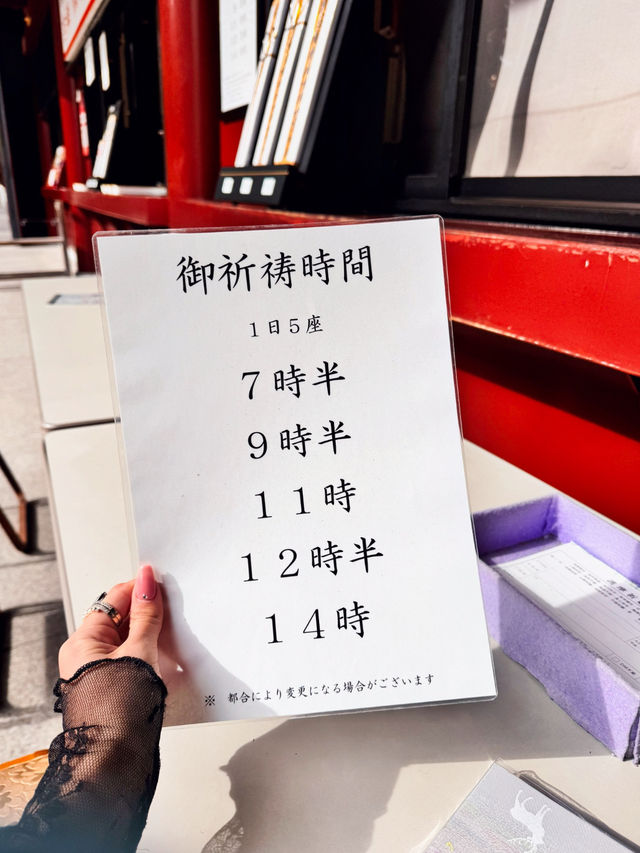 御祈祷時間
1日5座
7時半
9時半
11時
12時半
14時
※ 都合により変更になる場合がございます